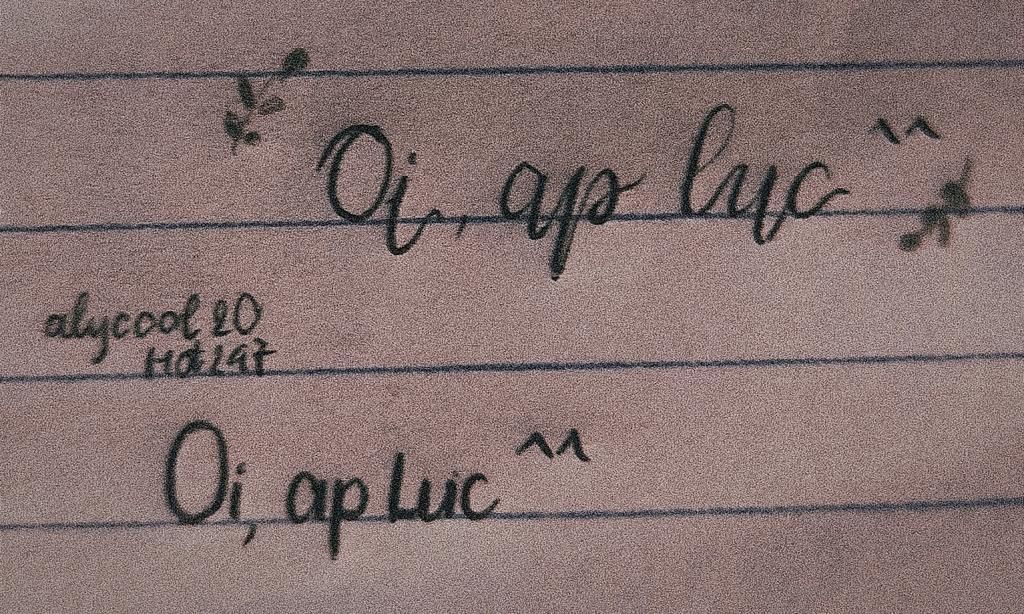 Oi, ap luc ^^
alycool 20
Hđ247
Oi, ap luc ^^